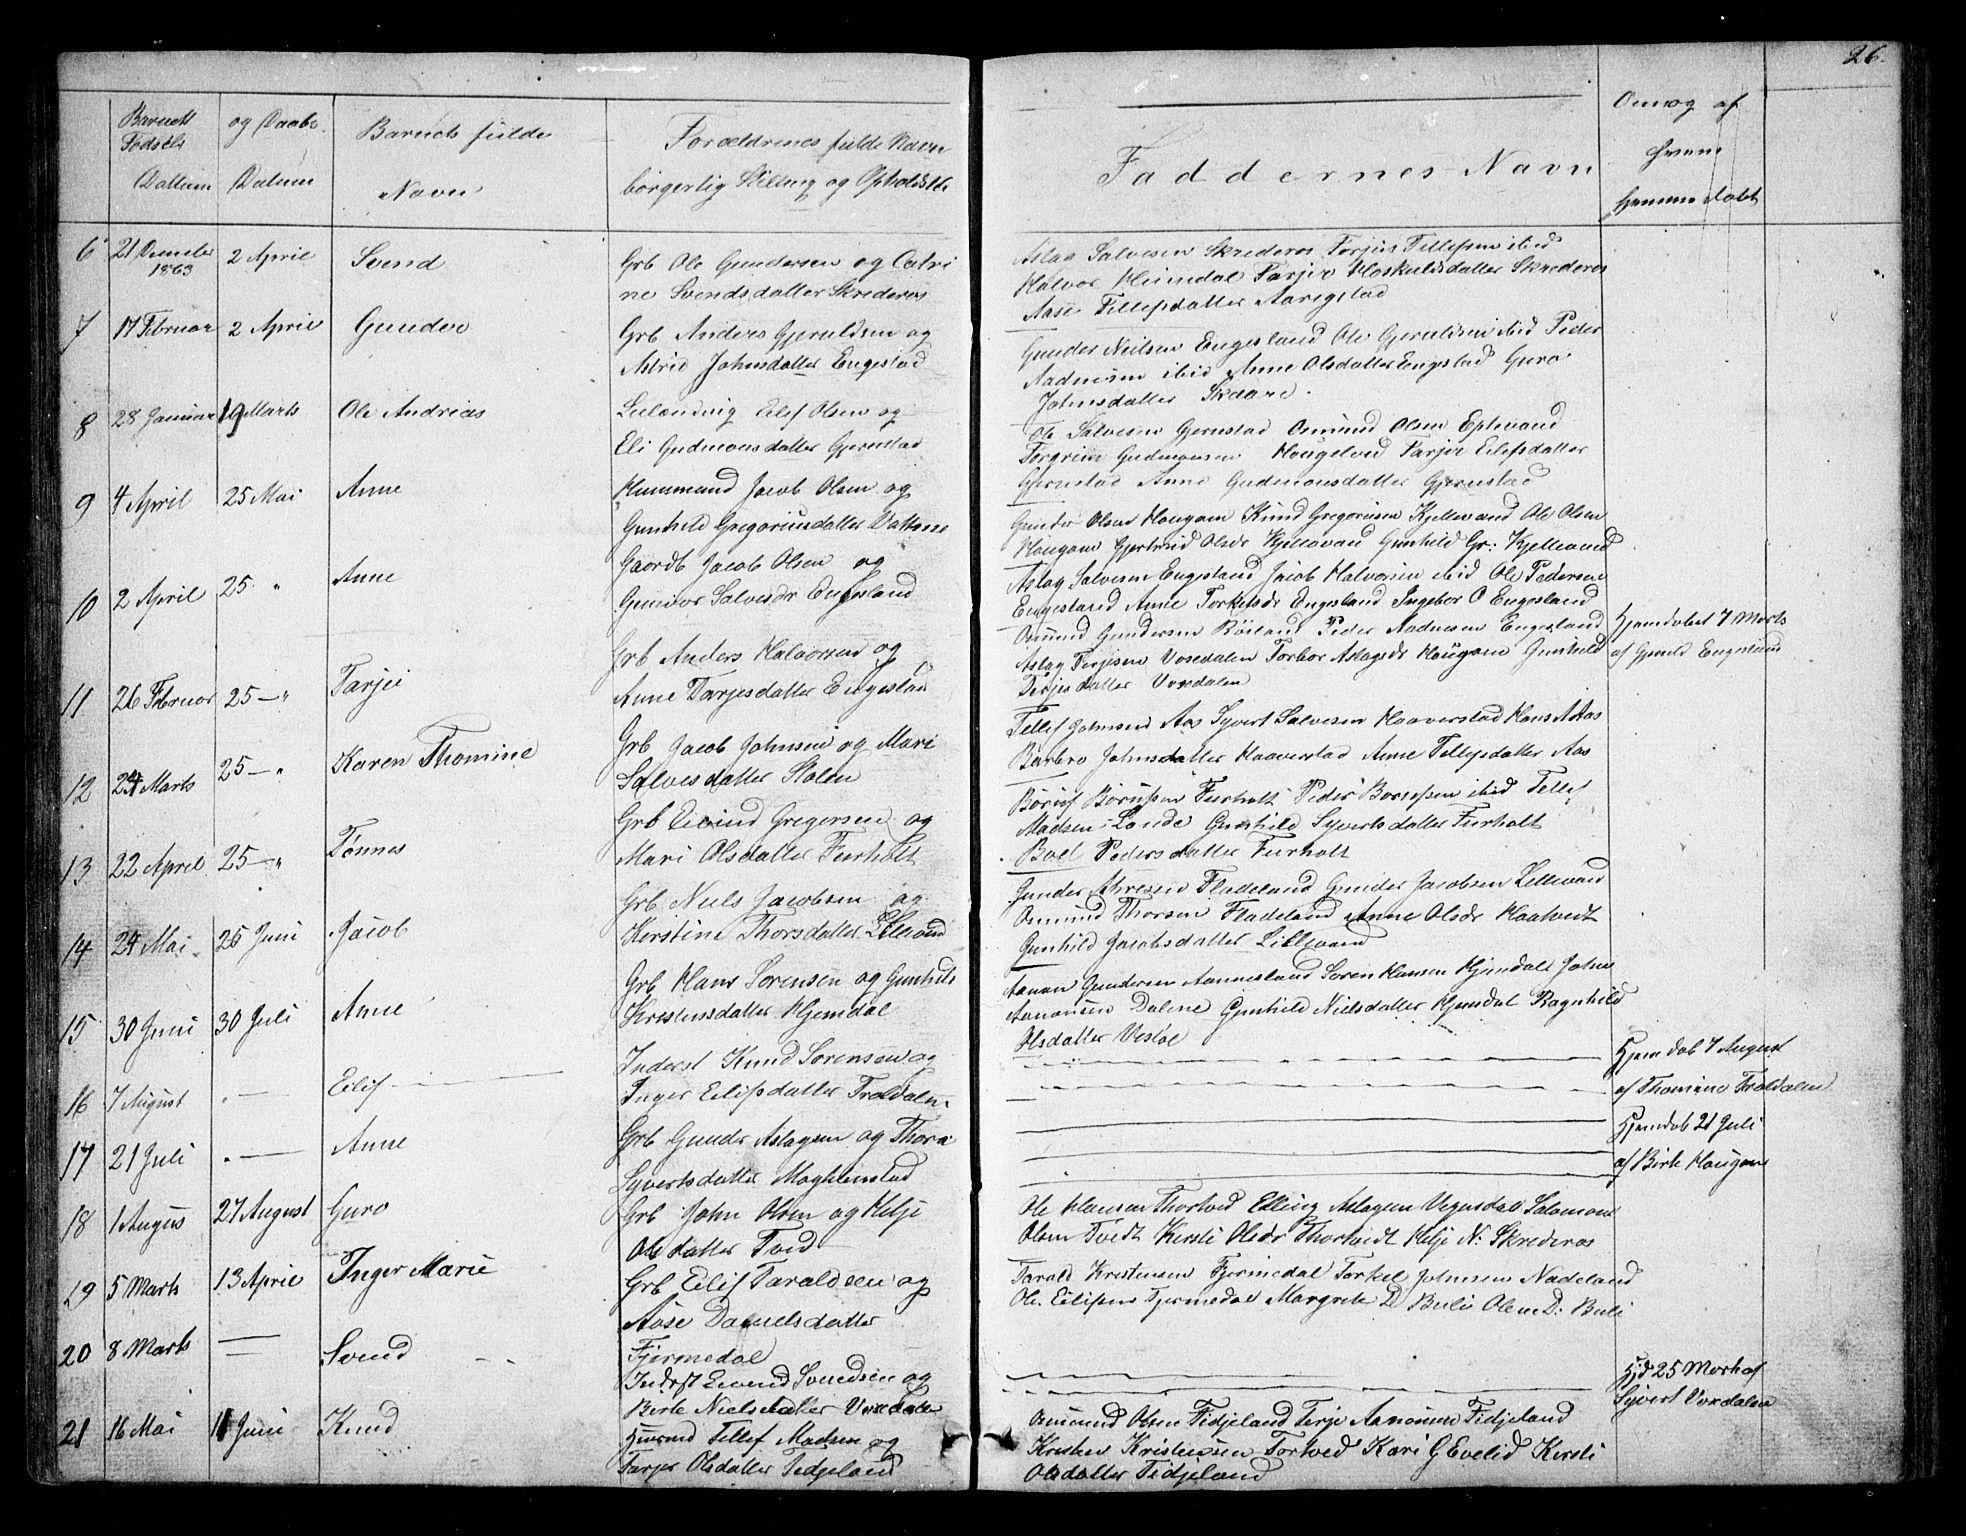 26.
Barnets
Fødsels
Dattum
og Daabs
Datum
Barnets fulde
Navn
Forældrenes fulde Navn
borgerlig Stilling og Opholdsste
Faddernes Navn
Om og af
hvem
hjemmedøbt
6 21 December 1863 2 April Svend
Grb Ole Gundersen og Catri
ne Svendsdatter Skrederos
Aslag Salvesen Skrederos Torjus Tellefsen ibid
Halvor Heimdal Tarjer Hoskuldsdatter Skrederos
Aase Tellefsdatter Aavigstad
7 17 Februar 2 April Gunder
Grb Anders Gjeruldsen og
Astrid Johnsdatter Engestad
Gunder Neilsen Engesland Ole Gjeruldsen ibid Peder
Aadnesen ibid Anne Olsdatter Engestad Guro
Johnsdatter Skaare.
8 28 Januar 19 Marts Ole Andreas
Leilending Eilef Olsen og
Eli Gudmonsdatter Gjernstad
Ole Salvesen Gjernstad Osmund Olsen Eptevand
Torgrim Gudmonsen Hougelvd Tarjer Eilefsdatter
Gjernstad Anne Gudmonsdatter Gjernstad
9 4 April 25 Mai Anne
Huusmand Jacob Olsen og
Gunhild Gregoriusdatter Vattene
Gunder Olsen Hougom Knud Gregoriusen Kjellevand Ole Olsen
Hougom Gjertrud Olsdr Kjellevand Gunhild Gr: Kjellevand
10 2 April 25 " Anne
Gaardb Jacob Olsen og
Gunvor Salvesdr Engesland
Aslag Salvesen Engesland Jacob Halvorsen ibid Ole Pedersen
Engesland Anne Torkelsdr Engesland Ingebor O Engesland
11 26 Februar 25 — " Tarjei
Grb Anders Halvorsen og
Anne Tarjesdatter Engesland
Osmund Gundersen Røisland Peder Aadnesen Engesland
Aslag Terjesen Vosedalen Torbor Aslagsdr Hougom Gunhild
Terjesdatter Vosedalen
Hjemdøbet 7 Marts
af Gjeruld Engesland
12 24 Marts 25 — " Karen Thomine
Grb Jacob Johnsen og Mari
Salvesdatter Stolen
Tellef Johnsen Aas Syvert Salvesen Haaverstad Hans A Aas
Barbro Johnsdatter Haaverstad Anne Tellefsdatter Aas
13 22 April 25 — " Tønnes
Grb Eivind Gregersen og
Mari Olsdatter Furholt
Børuf Børufsen Furholt Peder Børufsen ibid Tellef
Madsen Lande Gunhild Syvertsdatter Furholt
Boel Pedersdatter Furholt
14 24 Mai 25 Juni Jacob
Grb Niels Jacobsen og
Kirstine Thorsdatter Lillevand
Gunder Fladeland Gunder Jacobsen Lillevand
Osmund Thorsen Fladeland Anne Olsdr Haatvedt
Gunhild Jacobsdatter Lillevand
15 30 Juni 30 Juli Anne
Grb Hans Sørensen og Gunhild
Kristensdatter Hjemdal
Aanon Gundersen Aannesland Søren Hansen Hjemdal Johns
Aanonsen Dalene Gunhild Nielsdatter Hjemdal Ragnhild
Olsdatter Vestøe
16 7 August . — Eilif
Inderst Knud Sørensen og
Inger Eilifsdatter Troldalen
Hjemdøb 7 August
af Thomine Troldalen
17 21 Juli . — Anne
Grb Gunder Aslagsen og Thora
Syvertsdatter Moghlenstad
Hjemdøb 21 Juli
af Birte Hougom
18 1 Augus 27 August Guro
Grb John Olsen og Helje
Olsdatter Tved
Ole Hansen Thortved Elling Aslagsen Vegusdal Salamon
Olsen Tvedt Kersti Olsdr Thortvedt Helje N: Skrederos
19 5 Marts 13 April Inger Marie
Grb Eilif Taraldsen og
Aase Danielsdatter
Fjermedal
Tarald Kristensen Fjermedal Torkel Johnsen Nadeland
Ole Eilifsen Fjermedal Margrete D Beili Olene D: Beili
20 8 Marts — Svend
Indrst Eivend Svendsen og
Birte Nielsdatter Vosedalen
Hjd 25 Mark af
Syvert Vosdalen
21 16 Mai 11 Juni Knud
Huusmd Tellef Madsen og
Tarjer Olsdatter Fidjeland
Osmund Olsen Fidjeland Terje Aanonsen Fidjeland
Kristen Kristensen Tortved Kari G Evelid Kersti
Olsdatter Fidjeland